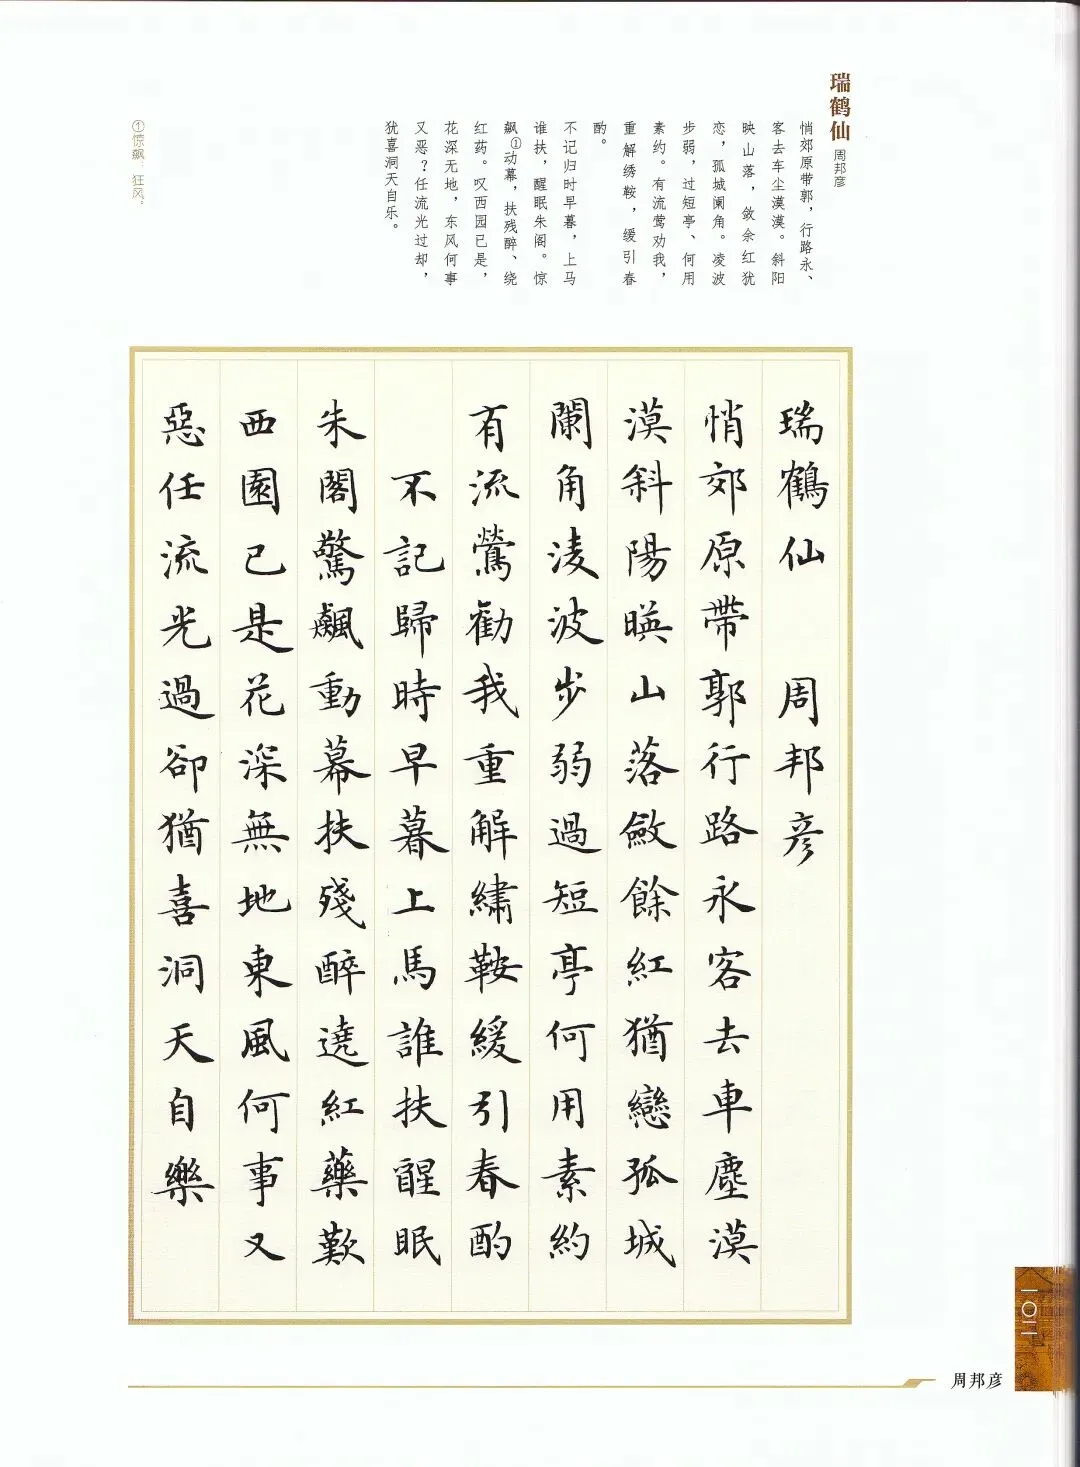 瑞鹤仙 周邦彦
悄郊原带郭，行路永、
客去车尘漠漠。斜阳
映山落，敛余红犹
恋，孤城阑角。凌波
步弱，过短亭、何用
素约。有流莺劝我，
重解绣鞍，缓引春
酌。
不记归时早暮，上马
谁扶，醒眠朱阁。惊
飙①动幕，扶残醉、绕
红药。叹西园已是，
花深无地，东风何事
又恶？任流光过却，
犹喜洞天自乐。
①惊飙：狂风。
瑞鶴仙 周邦彦
悄郊原帶郭行路永客去車塵漠
漠斜陽暎山落斂餘紅猶戀孤城
闌角淩波步弱過短亭何用素約
有流鶯勸我重解繡鞍緩引春酌
不記歸時早暮上馬誰扶醒眠
朱閣驚飆動幕扶殘醉遶紅藥歎
西園已是花深無地東風何事又
惡任流光過卻猶喜洞天自樂
一〇二
周邦彦